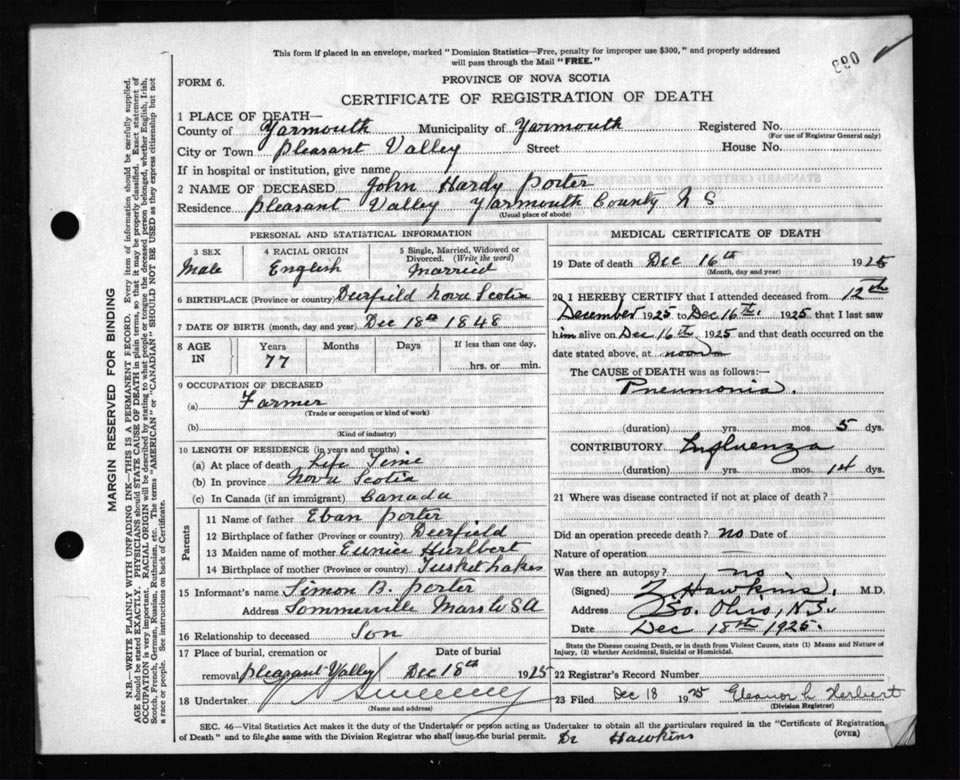 This form if placed in an envelope, marked "Dominion Statistics—Free, penalty for improper use $300," and properly addressed
will pass through the Mail "FREE."
FORM 6.
PROVINCE OF NOVA SCOTIA
CERTIFICATE OF REGISTRATION OF DEATH
1 PLACE OF DEATH—
County of Yarmouth Municipality of Yarmouth Registered No.
(For use of Registrar General only)
City or Town Pleasant Valley Street House No.
If in hospital or institution, give name
2 NAME OF DECEASED John Hardy Porter
Residence Pleasant Valley Yarmouth County N S
(Usual place of abode)
PERSONAL AND STATISTICAL INFORMATION
3 SEX Male
4 RACIAL ORIGIN English
5 Single, Married, Widowed or
Divorced. (Write the word)
Married
6 BIRTHPLACE (Province or country) Deerfield Nova Scotia
7 DATE OF BIRTH (month, day and year) Dec 18th 1848
8 AGE IN
Years 77 Months Days
If less than one day,
hrs. or min.
9 OCCUPATION OF DECEASED
(a) Farmer
(Trade or occupation or kind of work)
(b)
(Kind of industry)
10 LENGTH OF RESIDENCE (in years and months)
(a) At place of death Life Time
(b) In province Nova Scotia
(c) In Canada (if an immigrant) Canada
Parents
11 Name of father Eban Porter
12 Birthplace of father (Province or country) Deerfield
13 Maiden name of mother Eunice Hurlbert
14 Birthplace of mother (Province or country) Tusket Lakes
15 Informant's name Simon B. Porter
Address Sommerville Mass U S A
16 Relationship to deceased Son
17 Place of burial, cremation or
removal Pleasant Valley
Date of burial
Dec 18th 1925
18 Undertaker Sweeney
(Name and address)
MEDICAL CERTIFICATE OF DEATH
19 Date of death Dec 16th 1925
(Month, day and year)
20 I HEREBY CERTIFY that I attended deceased from 12th
December 1925 to Dec 16th. 1925 that I last saw
him alive on Dec 16th. 1925 and that death occurred on the
date stated above, at noon
The CAUSE of DEATH was as follows:—
Pneumonia.
(duration) yrs. mos. 5 dys.
CONTRIBUTORY Influenza
(duration) yrs. mos. 14 dys.
21 Where was disease contracted if not at place of death?
Did an operation precede death? no Date of
Nature of operation —
Was there an autopsy? no.
(Signed) Z. Hawkins, M.D.
Address So. Ohio, N.S.
Date Dec 18th 1925.
State the Disease causing Death, or in death from Violent Causes, state (1) Means and Nature of
Injury, (2) whether Accidental, Suicidal or Homicidal.
22 Registrar's Record Number
23 Filed Dec 18 1925 Eleanor L Herbert
(Division Registrar)
SEC. 46—Vital Statistics Act makes it the duty of the Undertaker or person acting as Undertaker to obtain all the particulars required in the "Certificate of Registration
of Death" and to file the same with the Division Registrar who shall issue the burial permit.
Dr Hawkins
(OVER)
MARGIN RESERVED FOR BINDING
N.B.—WRITE PLAINLY WITH UNFADING INK—THIS IS A PERMANENT RECORD. Every item of information should be carefully supplied.
AGE should be stated EXACTLY. PHYSICIANS should STATE CAUSE OF DEATH in plain terms, so that it may be properly classified. Exact statement of
OCCUPATION is very important. RACIAL ORIGIN will be described by stating to what people or tongue the deceased person belonged, whether English, Irish,
Scotch, French, German, Russian, Ruthenian, etc. The terms "AMERICAN" or "CANADIAN" SHOULD NOT BE USED as they express citizenship but not
a race or people. See instructions on back of Certificate.